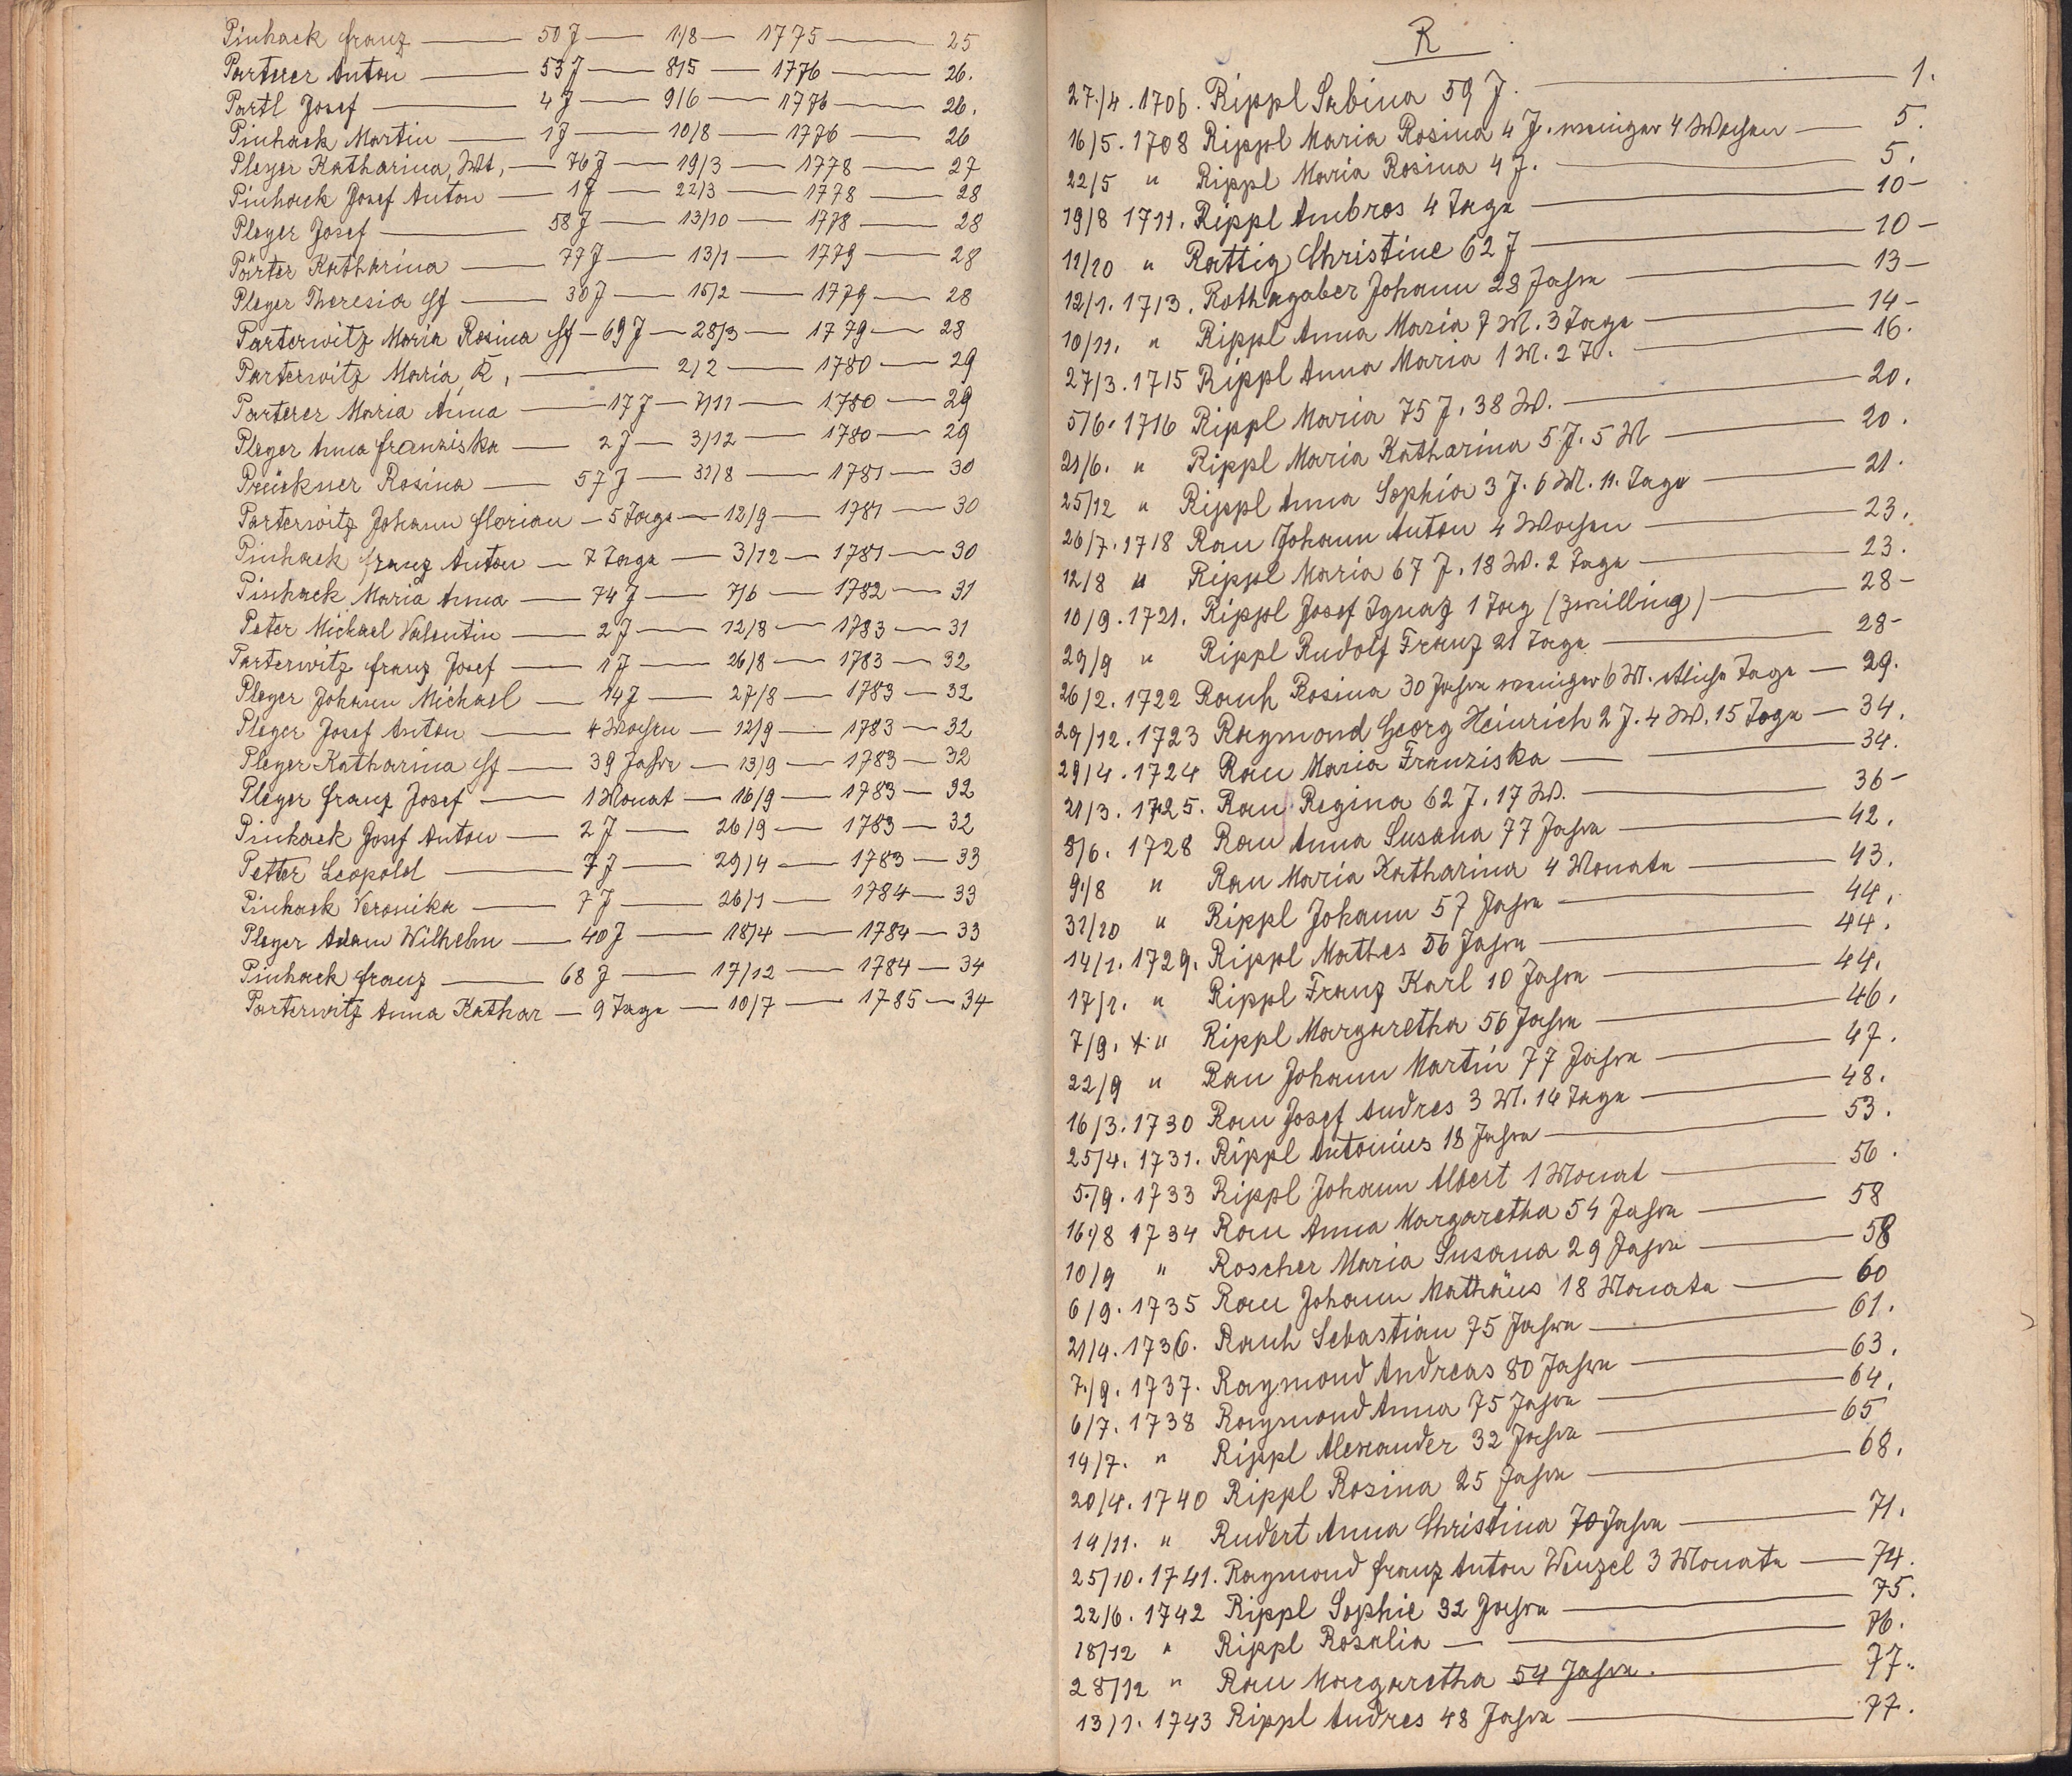 Pinhack Franz — 50 J — 1/8 — 1775 — 25
Parterer Anton — 53 J — 8/5 — 1776 — 26.
Partl Josef — 4 J — 9/6 — 1776 — 26.
Pinhack Martin — 1 J — 10/8 — 1776 — 26
Pleyer Katharina, Wt, — 76 J — 19/3 — 1778 — 27
Pinhack Josef Anton — 1 J — 22/3 — 1778 — 28
Pleyer Josef — 58 J — 13/10 — 1778 — 28
Pärter Katharina — 77 J — 13/1 — 1779 — 28
Pleyer Theresia Hf — 30 J — 15/2 — 1779 — 28
Parterwitz Maria Rosina Hf — 69 J — 28/3 — 1779 — 28
Parterwitz Maria, K, — 2/2 — 1780 — 29
Parterer Maria Anna — 17 J — 7/11 — 1780 — 29
Pleyer Anna Franziska — 2 J — 3/12 — 1780 — 29
Prückner Rosina — 57 J — 31/8 — 1781 — 30
Parterwitz Johann Florian — 5 Tage — 12/9 — 1781 — 30
Pinhack Franz Anton — 7 Tage — 3/12 — 1781 — 30
Pinhack Maria Anna — 74 J — 7/6 — 1782 — 31
Peter Michael Valentin — 2 J — 12/8 — 1783 — 31
Parterwitz Franz Josef — 1 J — 26/8 — 1783 — 32
Pleyer Johann Michael — 14 J — 27/8 — 1783 — 32
Pleyer Josef Anton — 4 Wochen — 12/9 — 1783 — 32
Pleyer Katharina Hf — 39 Jahre — 13/9 — 1783 — 32
Pleyer Franz Josef — 1 Monat — 16/9 — 1783 — 32
Pinhack Josef Anton — 2 J — 26/9 — 1783 — 32
Petter Leopold — 7 J — 29/4 — 1783 — 33
Pinhack Veronika — 7 J — 26/1 — 1784 — 33
Pleyer Adam Wilhelm — 40 J — 18/4 — 1784 — 33
Pinhack Franz — 68 J — 17/12 — 1784 — 34
Parterwitz Anna Kathar — 9 Tage — 10/7 — 1785 — 34
R
27./4. 1706. Rippl Sabina 59 J. — 1.
16/5. 1708 Rippl Maria Rosina 4 J. weniger 4 Wochen — 5.
22/5 " Rippl Maria Rosina 4 J. — 5.
19/8 1711. Rippl Ambros 4 Tage — 10 —
11/10 " Rattig Christine 62 J — 10 —
12/1. 1713. Rothagaber Johann 28 Jahre — 13 —
10/11. " Rippl Anna Maria 7 M. 3 Tage — 14 —
27/3. 1715 Rippl Anna Maria 1 M. 2 T. — 16.
5/6. 1716 Rippl Maria 75 J. 38 W. — 20.
21/6. " Rippl Maria Katharina 5 J. 5 M — 20.
25/12 " Rippl Anna Sophia 3 J. 6 M. 11. Tage — 21.
26/7. 1718 Rau Johann Anton 4 Wochen — 23.
12/8 " Rippl Maria 67 J. 18 W. 2 Tage — 23.
10/9. 1721. Rippl Josef Ignaz 1 Tag (Zwilling) — 28 —
29/9 " Rippl Rudolf Franz 21 Tage — 28 —
26/2. 1722 Rauh Rosina 30 Jahre weniger 6 M. etliche Tage — 29.
29/12. 1723 Raymond Georg Heinrich 2 J. 4 W. 15 Tage — 34.
29/4. 1724 Rau Maria Franziska — 34.
21/3. 1725. Rau Regina 62 J. 17 W. — 36 —
8/6. 1728 Rau Anna Susana 77 Jahre — 42.
9./8 " Rau Maria Katharina 4 Monate — 43.
31/10 " Rippl Johann 57 Jahre — 44.
14/1. 1729. Rippl Mathes 56 Jahre — 44.
17/1. " Rippl Franz Karl 10 Jahre — 44.
7/9. " Rippl Margaretha 56 Jahre — 46.
22/9 " Rau Johann Martin 77 Jahre — 47.
16/3. 1730 Rau Josef Andres 3 M. 14 Tage — 48.
25/4. 1731. Rippl Antonius 18 Jahre — 53.
5./9. 1733 Rippl Johann Albert 1 Monat — 56.
16./8 1734 Rau Anna Margaretha 54 Jahre — 58
10/9 " Roscher Maria Susana 29 Jahre — 58
6/9. 1735 Rau Johann Mathäus 18 Monate — 60
21/4. 1736. Rauh Sebastian 75 Jahre — 61.
7./9. 1737. Raymond Andreas 80 Jahre — 63.
6/7. 1738 Raymond Anna 75 Jahre — 64.
14/7. " Rippl Alexander 32 Jahre — 65
20/4. 1740 Rippl Rosina 25 Jahre — 68.
14/11. " Rudert Anna Christina 70 Jahre — 71.
25/10. 1741. Raymond Franz Anton Wenzel 3 Monate — 74.
22/6. 1742 Rippl Sophie 32 Jahre — 75.
18/12 " Rippl Rosalia — 76.
28/12 " Rau Margaretha 54 Jahre. — 77.
13/1. 1743 Rippl Andres 48 Jahre — 77.